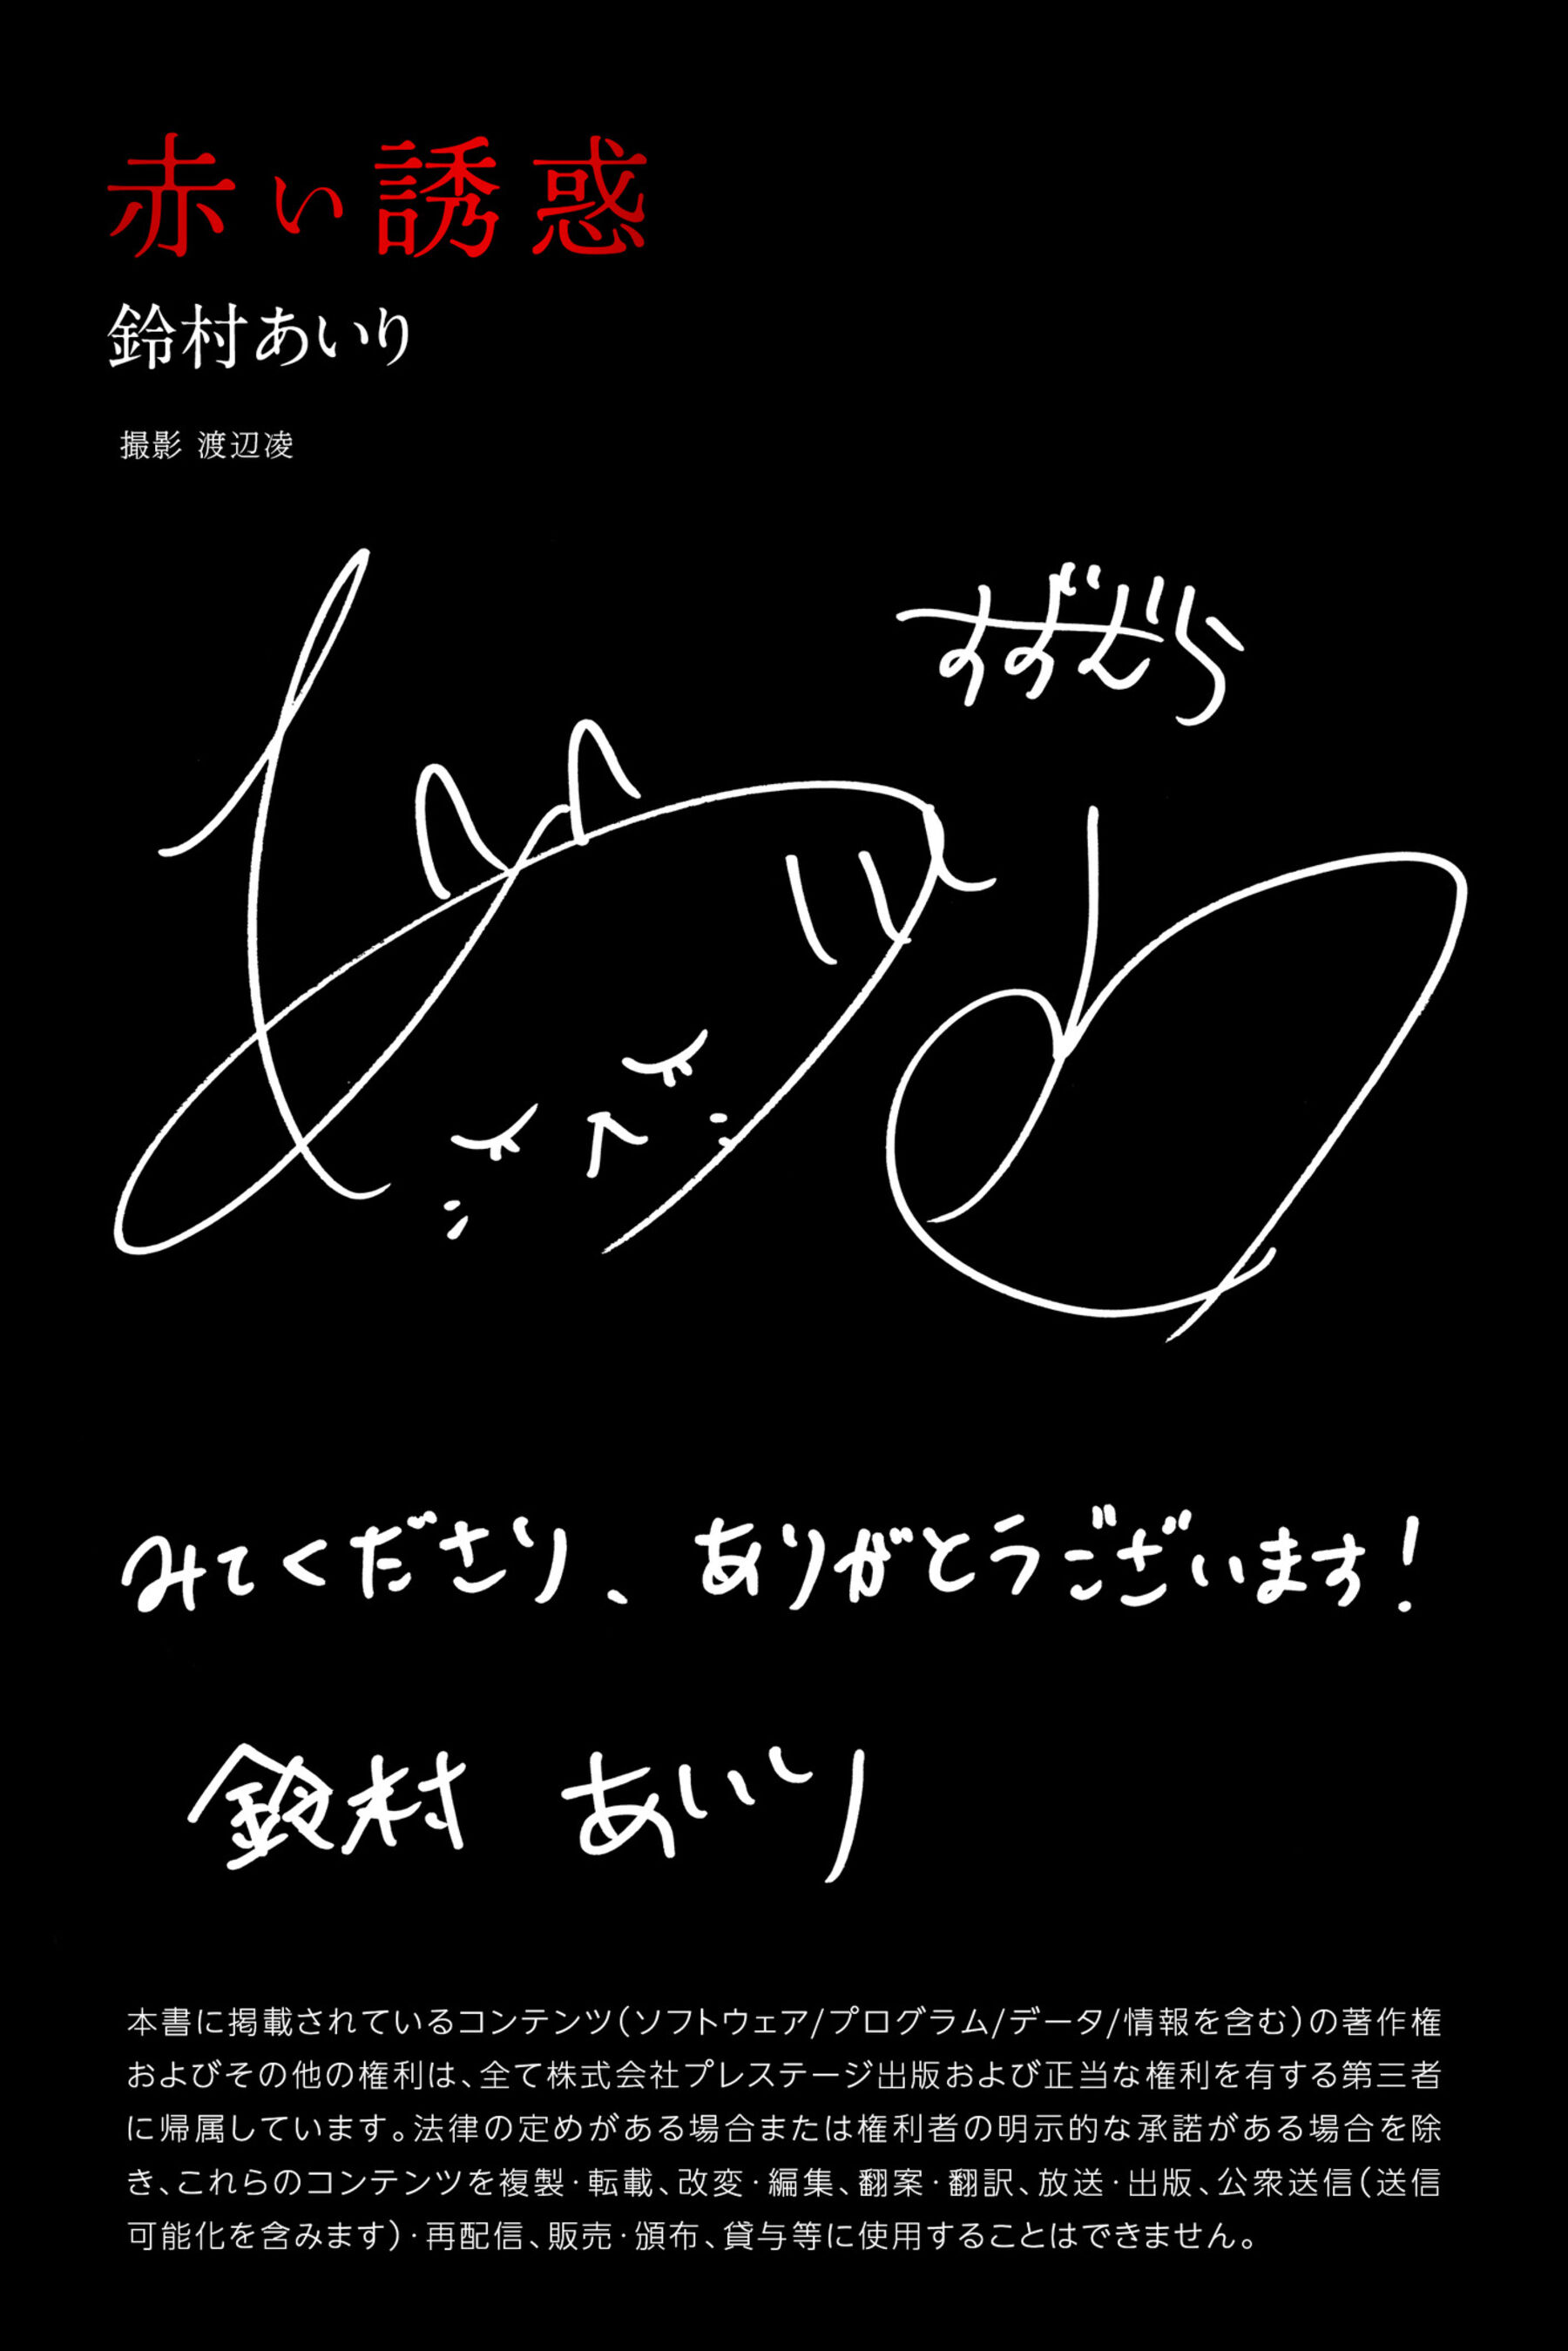 赤い誘惑
鈴村あいり
撮影 渡辺凌
すずむら
みてくださり、ありがとうございます!
鈴村 あいり
本書に掲載されているコンテンツ(ソフトウェア/プログラム/データ/情報を含む)の著作権
およびその他の権利は、全て株式会社プレステージ出版および正当な権利を有する第三者
に帰属しています。法律の定めがある場合または権利者の明示的な承諾がある場合を除
き、これらのコンテンツを複製・転載、改変・編集、翻案・翻訳、放送・出版、公衆送信(送信
可能化を含みます)・再配信、販売・頒布、貸与等に使用することはできません。